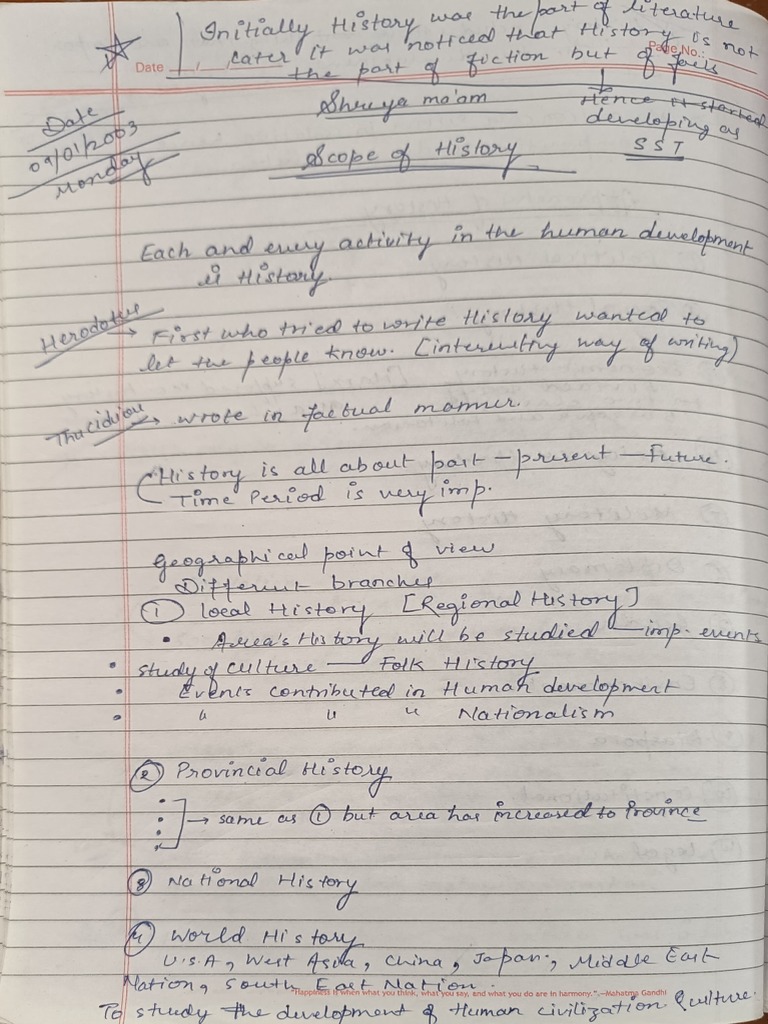 Initially History was the part of literature
Later it was noticed that History is not
the part of fiction but of facts
Date __/__/__
Page No.:
Hence it started
developing as
SST
Shreya ma'am
Date
09/01/2003
Monday
Scope of History
Each and every activity in the human development
is History.
Herodotus → First who tried to write History wanted to
let the people know. [interesting way of writing)
→ wrote in factual manner.
History is all about past — present — Future.
Time Period is very imp.
Geographical point of view
Different branches
① Local History [Regional History]
• Area's History will be studied — imp. events
• study of culture — Folk History
• Events contributed in Human development
• " " " Nationalism
② Provincial History
→ same as ① but area has increased to Province
③ National History
④ World History
U.S.A, West Asia, China, Japan, Middle East
Nation, South East Nation.
"Happiness is when what you think, what you say, and what you do are in harmony." –Mahatma Gandhi
To study the development of Human civilization & culture.